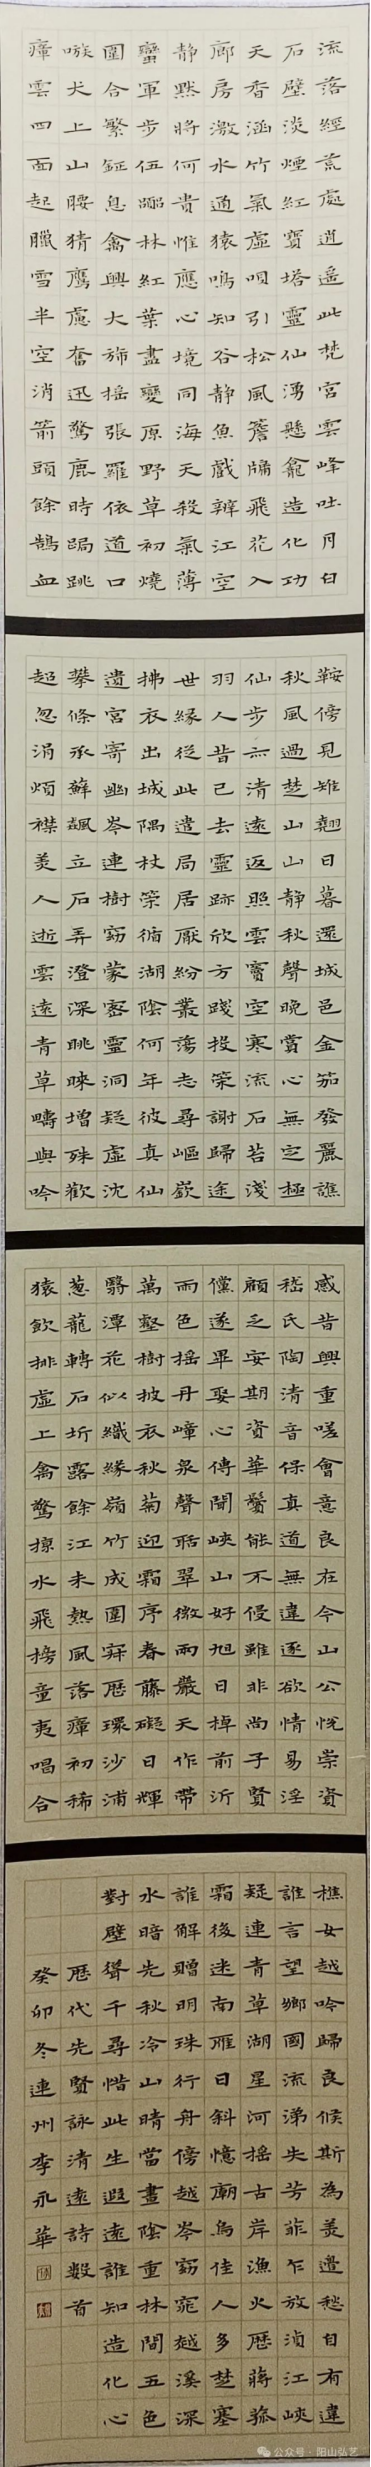 流落經荒處逍遥此梵宮雲峰吐月白
石壁淡煙紅寶塔靈仙湧懸龕造化功
天香涵竹氣虛唄引松風簷牖飛花入
廊房激水通猿鳴知谷静魚戲辨江空
静默將何貴惟應心境同海天殺氣薄
蠻軍步伍囂林紅葉盡變原野草初燒
圍合繁鉦息禽興大旆摇張羅依道口
嗾犬上山腰猜鷹慮奮迅驚鹿時跼跳
瘴雲四面起臘雪半空消箭頭餘鵠血
鞍傍見雉翹日暮還城邑金笳發麗譙
秋風過楚山山静秋聲晚賞心無定極
仙步亦清遠返照雲竇空寒流石苔淺
羽人昔已去靈跡欣方踐投策謝歸途
世緣從此遣局居厭紛叢蕩志尋嶇嶔
拂衣出城隅杖策循湖陰何年彼真仙
遺宮寄幽岑連樹窈蒙密靈洞疑虛沈
攀條承蘇飆立石弄澄深眺睞增殊歡
超忽涓煩襟美人逝雲遠青草疇與吟
感昔興重嗟會意良在今山公悦崇資
嵇氏陶清音保真道無違逐欲情易淫
顧乏安期資華鬢能不侵雖非尚子賢
儻遂畢娶心傳聞峽山好旭日棹前沂
雨色摇丹嶂泉聲聒翠微兩巖天作帶
萬壑樹披衣秋菊迎霜序春藤礙日輝
翳潭花似織緣嶺竹成圍寂歷環沙浦
葱蘢轉石圻露餘江未熱風落瘴初稀
猿飲排虛上禽驚掠水飛榜童夷唱合
樵女越吟歸良候斯為美邊愁自有違
誰言望鄉國流涕失芳菲乍放湞江峽
疑連青草湖星河摇古岸漁火歷蔣菰
霜後迷南雁日斜憶廟烏佳人多楚塞
誰解贈明珠行舟傍越岑窈窕越溪深
水暗先秋冷山晴當晝陰重林間五色
對壁聳千尋惜此生遐遠誰知造化心
歷代先賢詠清遠詩數首
癸卯冬連州李永華
公众号·阳山弘艺